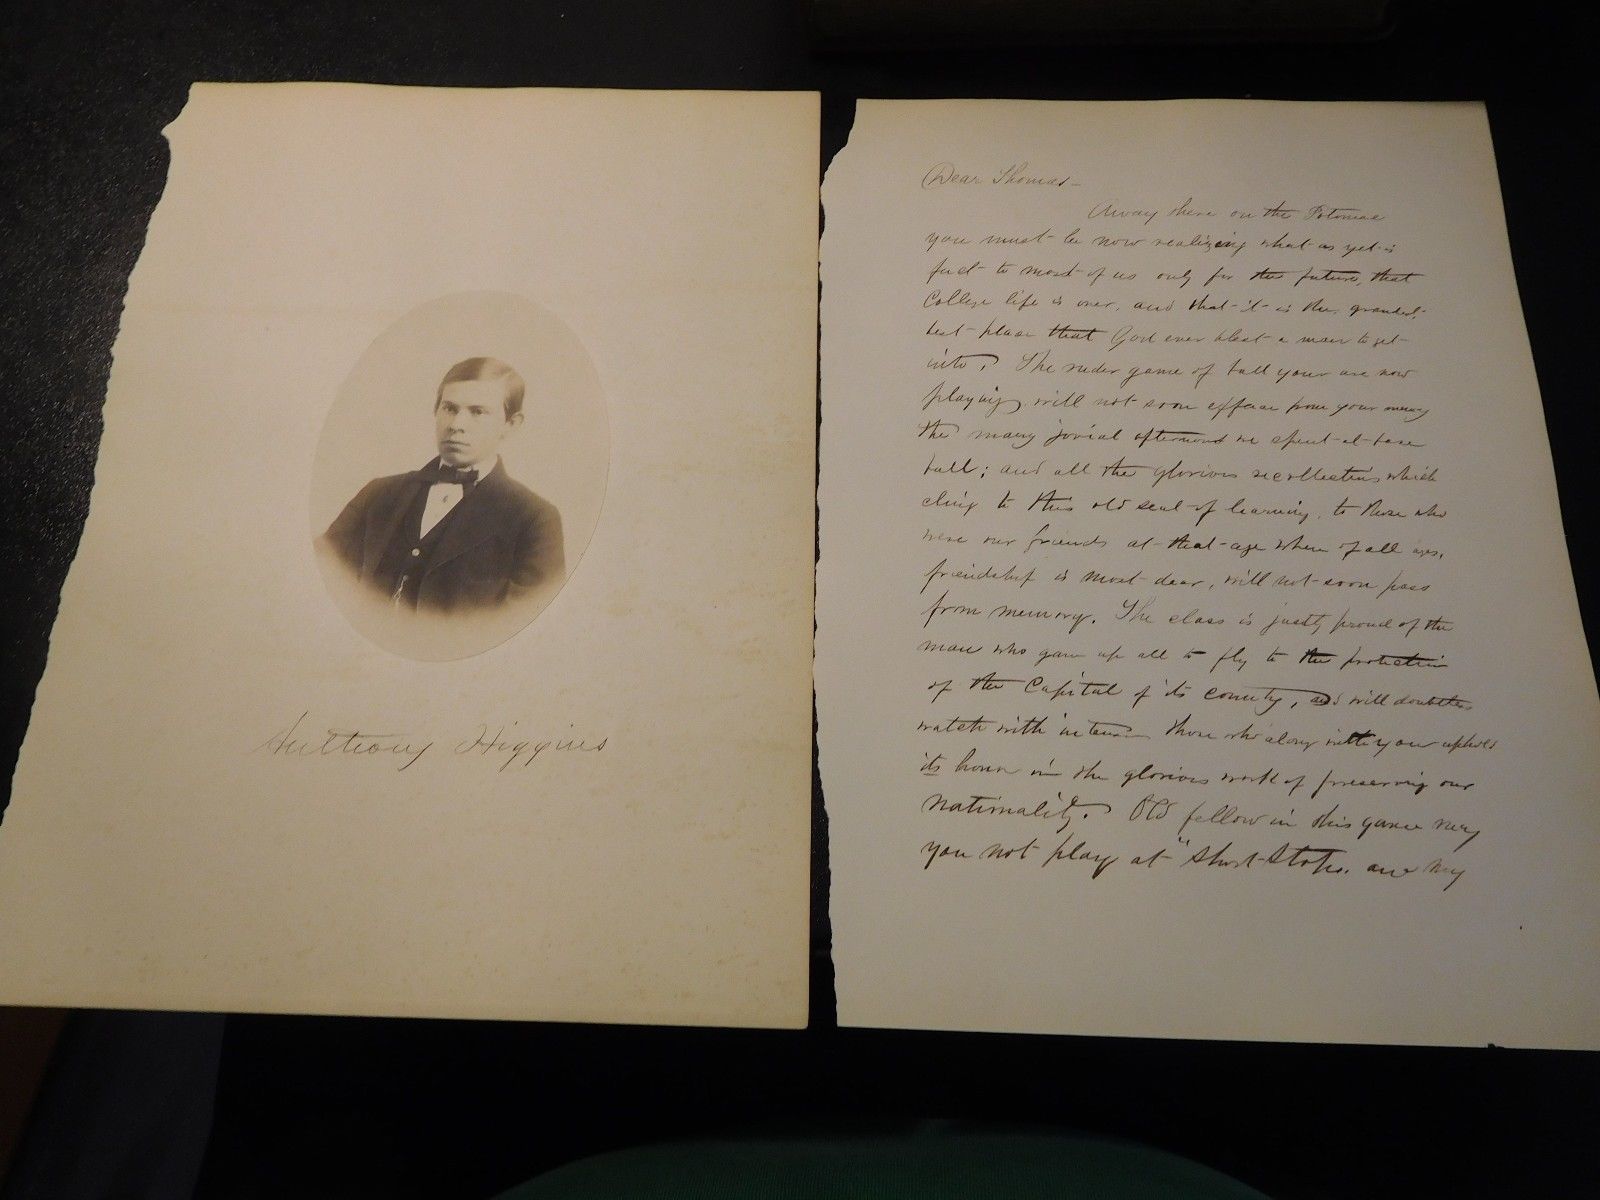 Anthony Higgins
Dear Thomas—
Away there on the Potomac
you must be now realizing what as yet is
fact to most of us only for the future, that
College life is over, and that it is the grandest,
best place that God ever blest a man to get
into. The ruder game of ball your are now
playing will not soon efface from your memory
the many jovial afternoons we spent at base
ball; and all the glorious recollections which
cling to this old seat of learning, to those who
were our friends at that age when of all ages,
friendship is most dear, will not soon pass
from memory. The class is justly proud of the
man who gave up all to fly to the protection
of the Capital of its country, and will doubtless
watch with those who along with you uphold
its honor in the glorious work of preserving our
nationality. Old fellow in this game may
you not play at "Short-Stop. and my